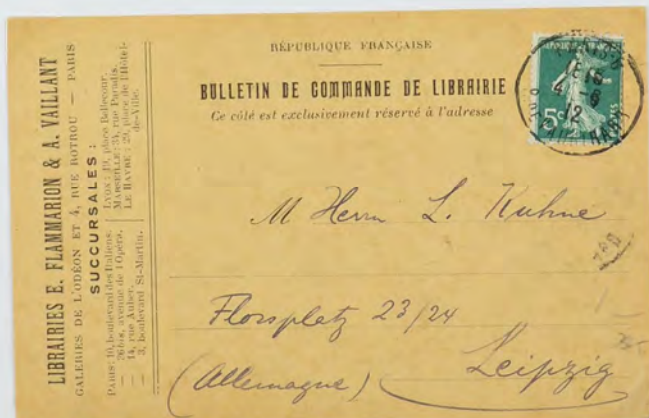 LIBRAIRIES E. FLAMMARION & A. VAILLANT
GALERIES DE L'ODÉON ET 4, RUE ROTROU — PARIS
SUCCURSALES :
PARIS: 10, boulevard des Italiens.
— 26bis, avenue de l'Opéra.
— 14, rue Auber.
— 3, boulevard St-Martin.
LYON: 19, place Bellecour.
MARSEILLE: 34, rue Paradis.
LE HAVRE: 29, place de l'Hôtel-
de-Ville.
RÉPUBLIQUE FRANÇAISE
BULLETIN DE COMMANDE DE LIBRAIRIE
Ce côté est exclusivement réservé à l'adresse
5c
POSTES
12
M Herrn L. Kuhne
Flossplatz 23/24
Leipzig
(Allemagne)